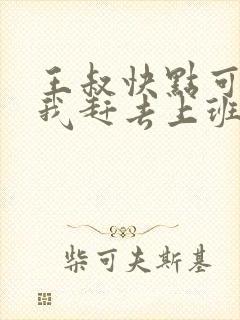 王叔快點可
我赶去上班
柴可夫斯基